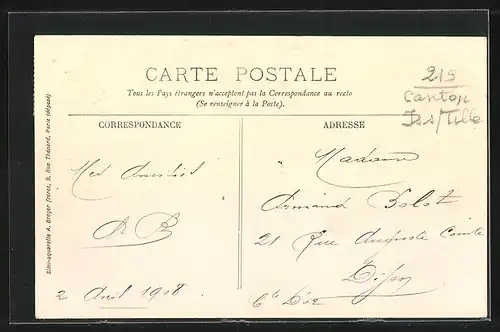 CARTE POSTALE
Tous les Pays étrangers n'acceptent pas la Correspondance au recto
(Se renseigner à la Poste).
215
Canton
Is s/ Tille
CORRESPONDANCE
ADRESSE
Simi-aquarelle A. Breger frères, 9, Rue Thénard, Paris (déposé)
Mes Amitiés
A B
2 Avril 1908
Madame
Armand
21 Rue Auguste Comte
Dijon
Cte D'or